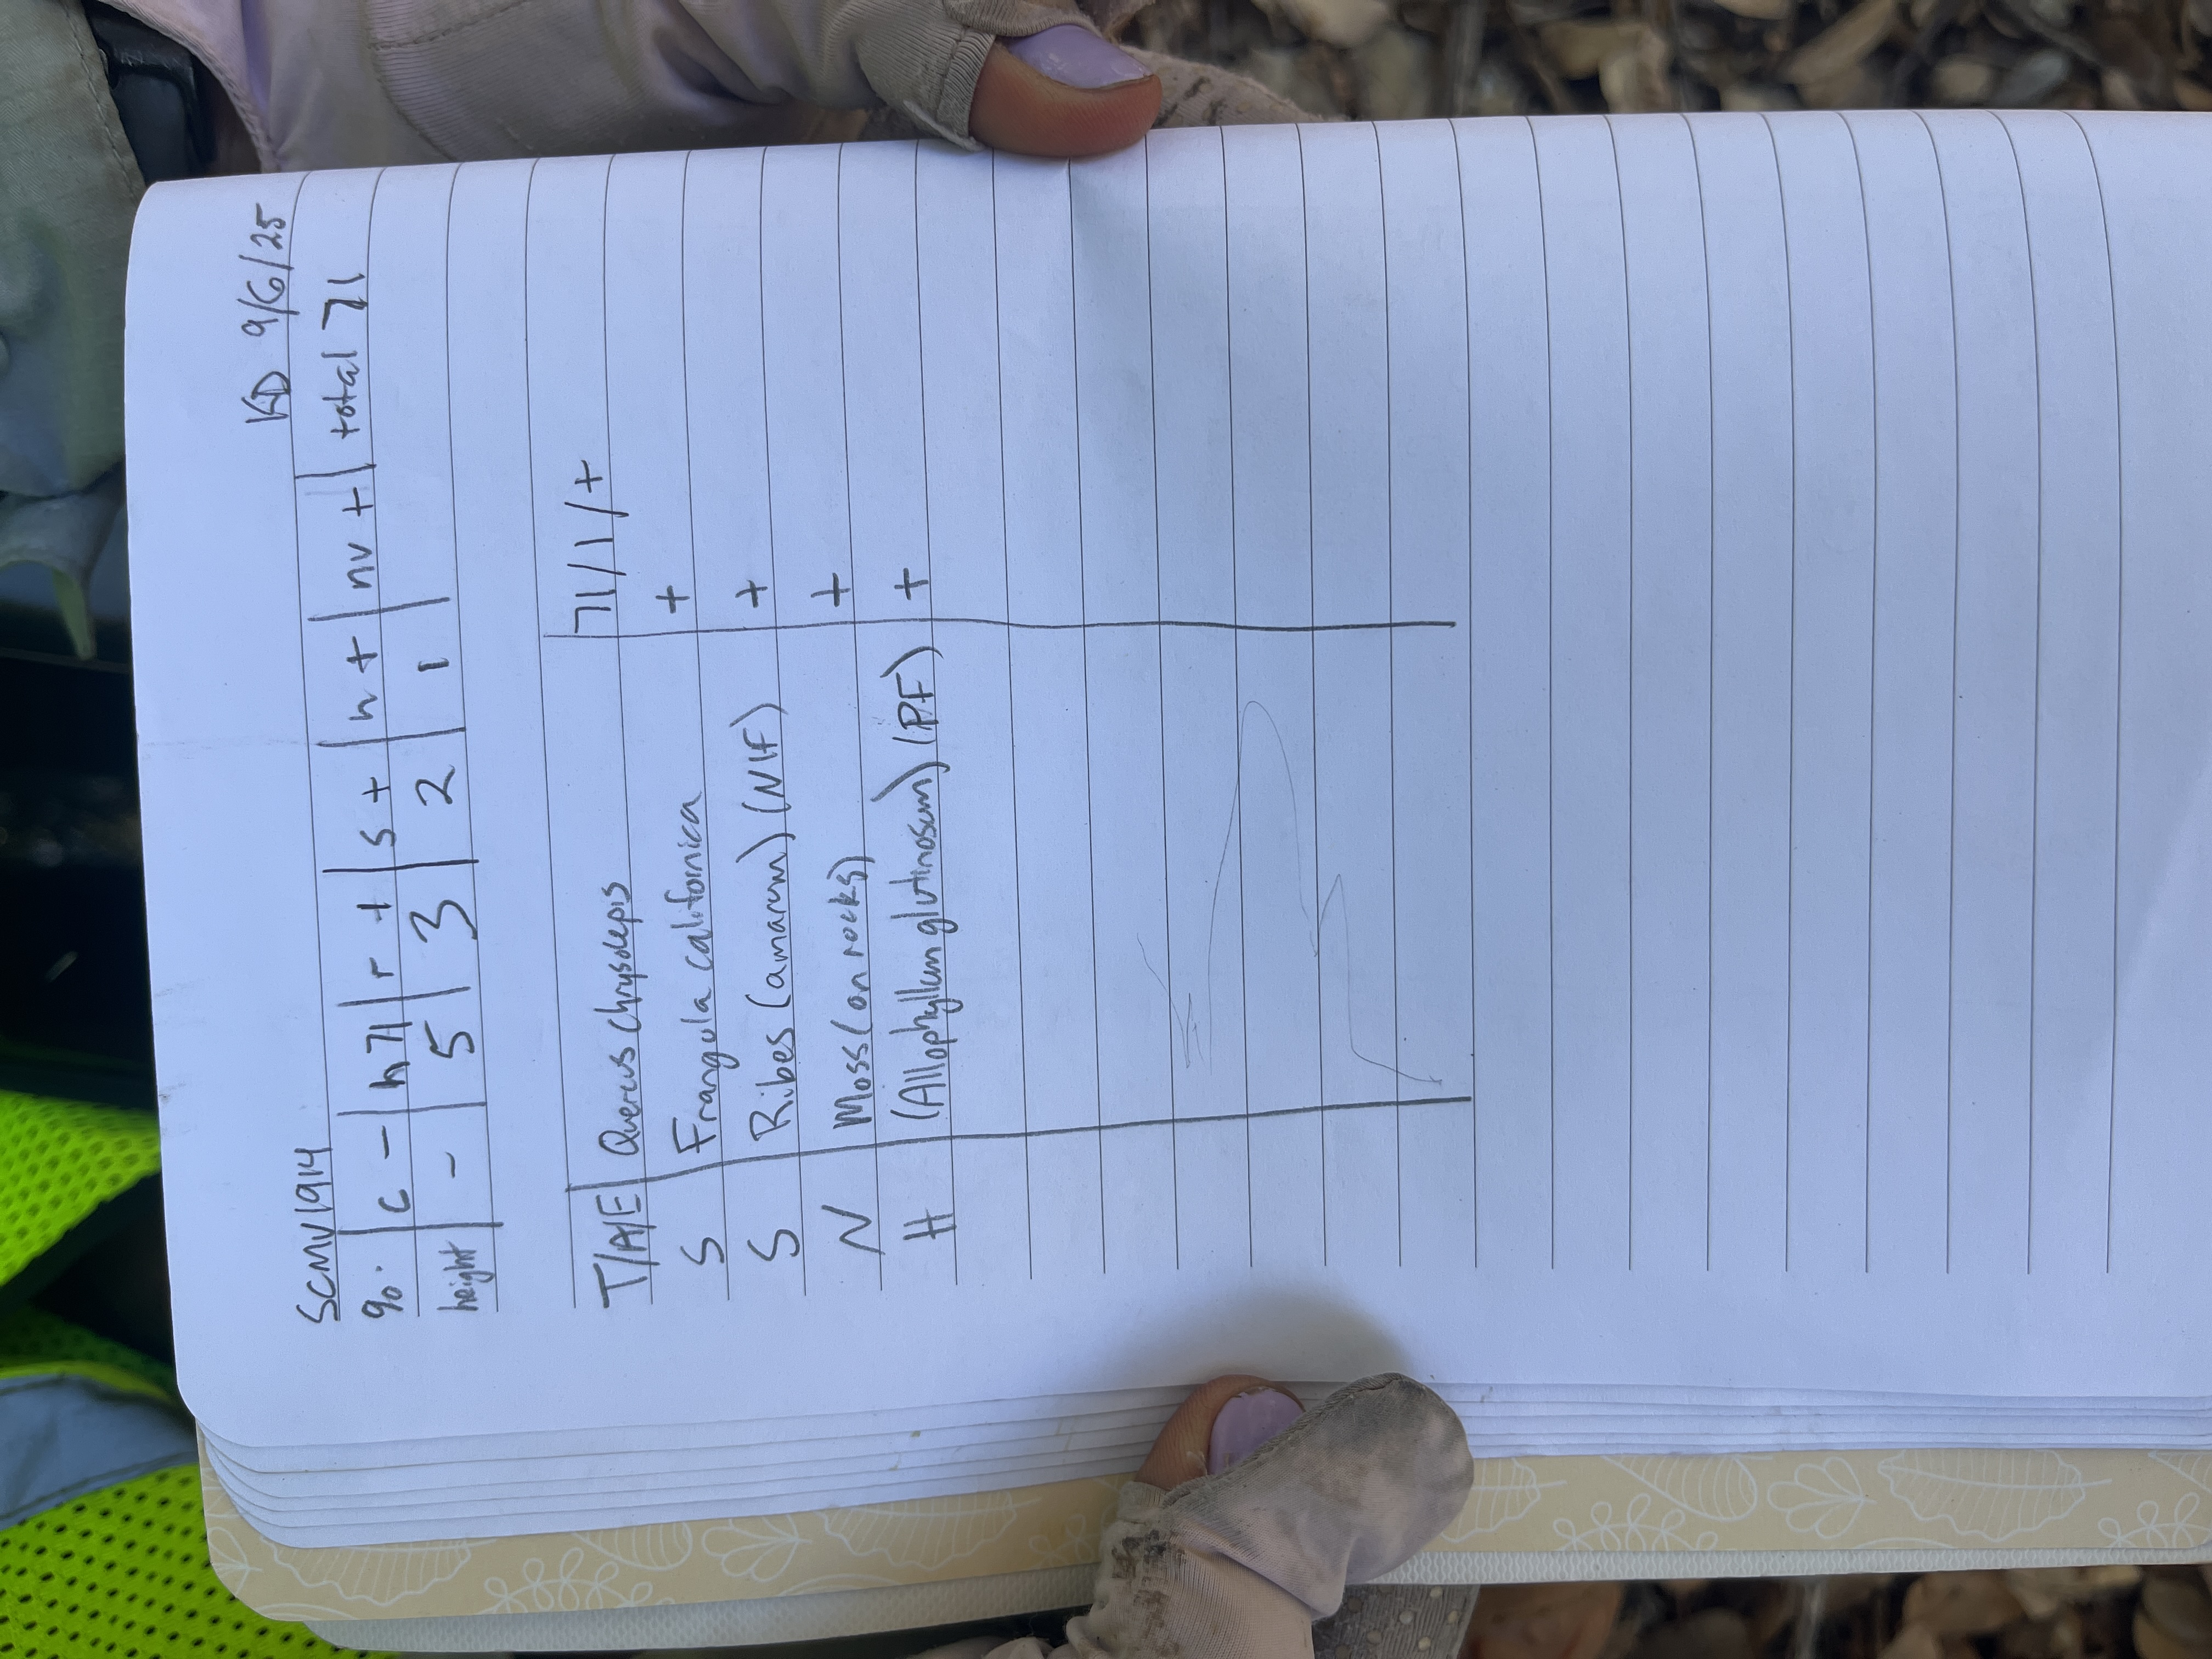 KD 9/6/25
SCMV1914
% | c - | h71 | r + | s + | h + | nv + | total 71
height | - | 5 | 3 | 2 | 1 |
T/A/E | Quercus chrysolepis | 71/1/+
S Frangula californica +
S Ribes (amarum) (NIF) +
N Moss (on rocks) +
H (Allophyllum glutinosum) (PF) +